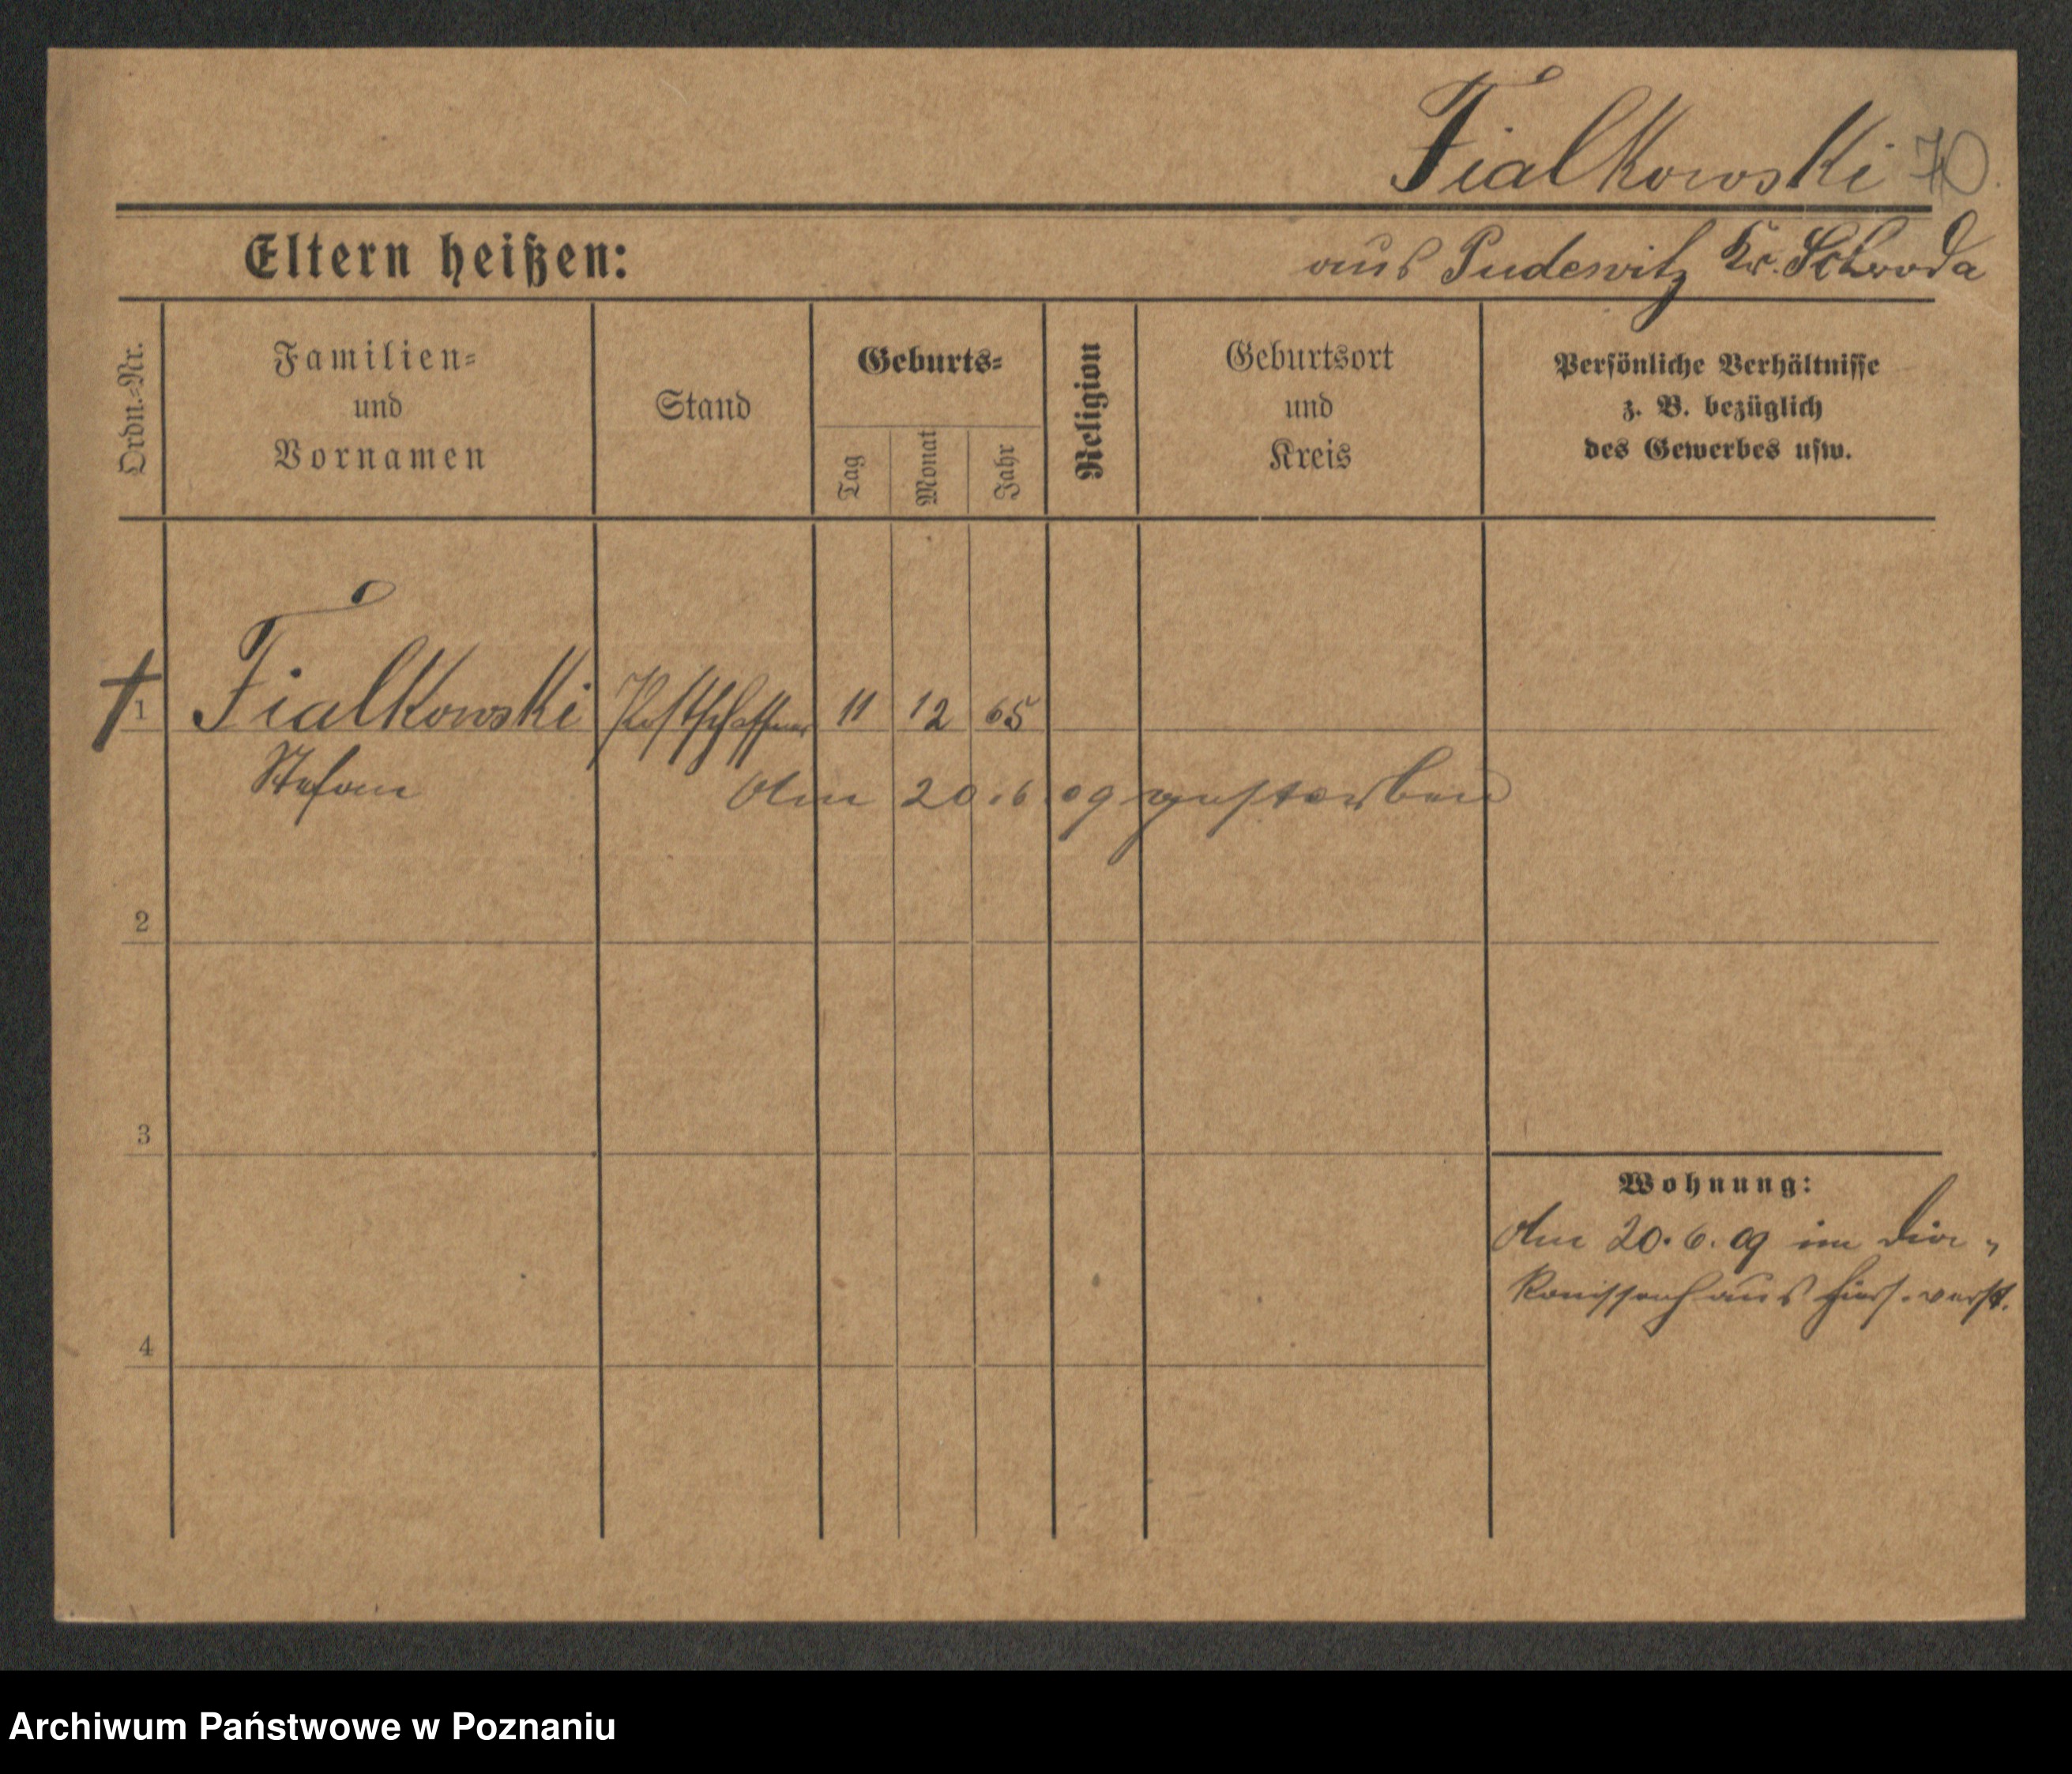 Fialkowski 70.
Eltern heißen: aus Pudewitz Kr. Schroda
Ordn.=Nr.
Familien=
und
Vornamen
Stand
Geburts=
Tag
Monat
Jahr
Religion
Geburtsort
und
Kreis
Persönliche Verhältnisse
z. B. bezüglich
des Gewerbes usw.
† 1 Fialkowski Postschaffner 11 12 65
Stefan Am 20.6 09 gestorben
2
3
Wohnung:
Am 20.6.09 im Dia-
konissenhaus hies. verst.
4
Archiwum Państwowe w Poznaniu